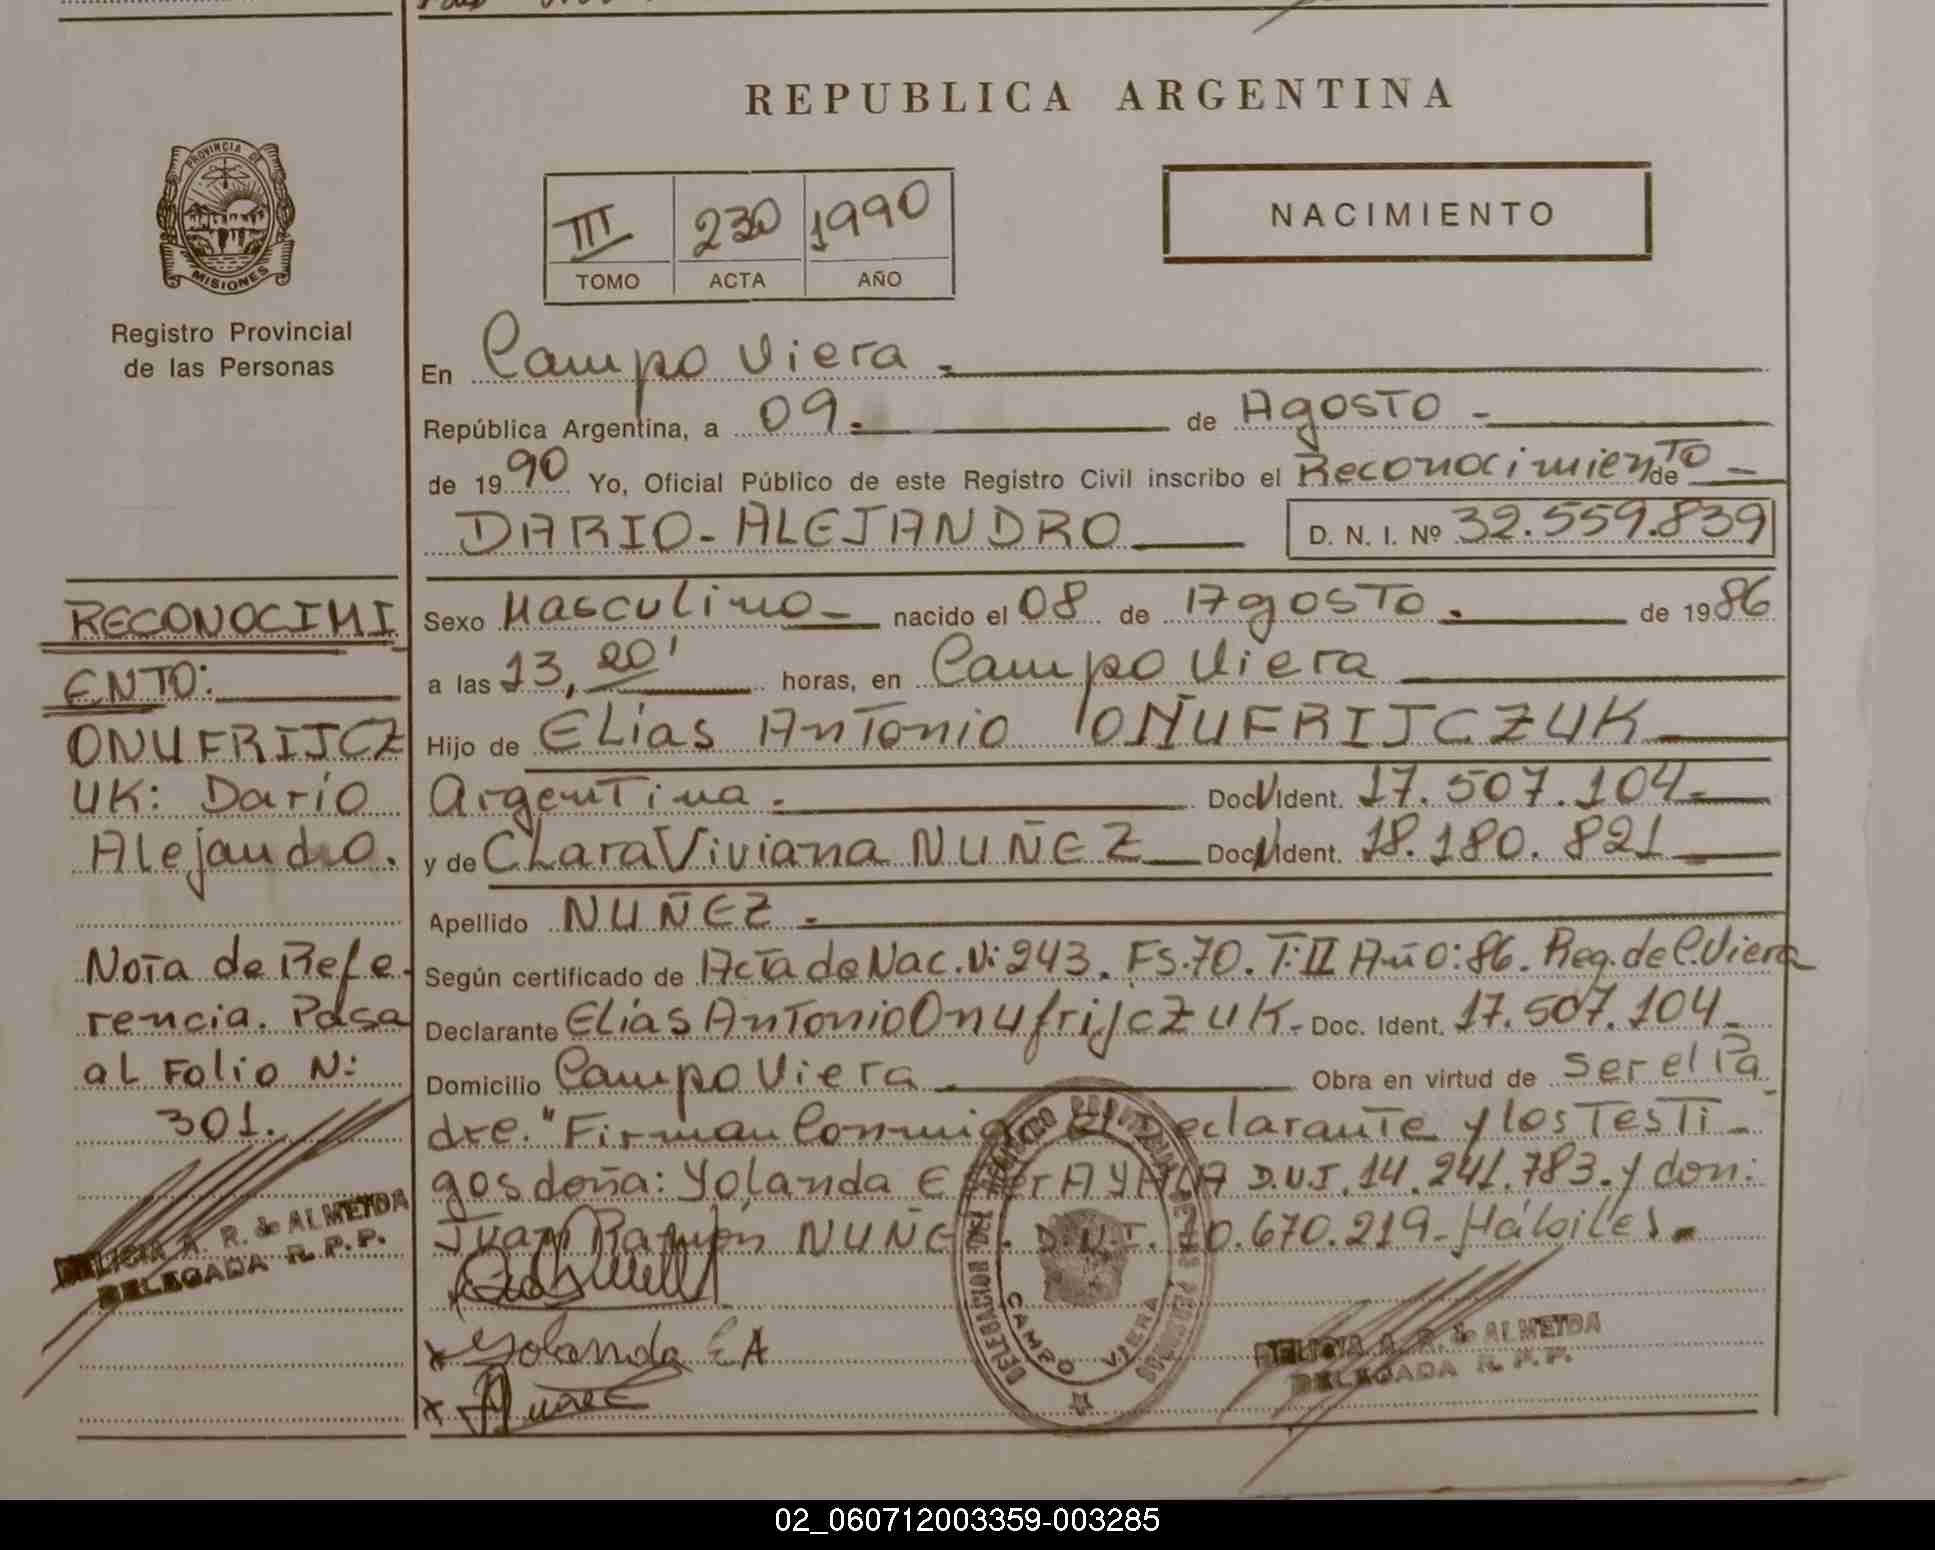 REPUBLICA ARGENTINA
PROVINCIA DE
MISIONES
Registro Provincial
de las Personas
III 230 1990
TOMO ACTA AÑO
NACIMIENTO
En Campo Viera.
República Argentina, a 09. de Agosto -
de 1990 Yo, Oficial Público de este Registro Civil inscribo el Reconocimiento de
DARIO-ALEJANDRO D. N. I. Nº 32.559.839
Sexo Masculino nacido el 08 de Agosto. de 1986
a las 13,20' horas, en Campo Viera
Hijo de Elías Antonio ONUFRIJCZUK
Argentina. Doc. Ident. 17.507.104-
y de Clara Viviana NUÑEZ Doc. Ident. 18.180.821
Apellido NUÑEZ.
Según certificado de Acta de Nac. N: 243. Fs. 70. T: II Año: 86. Reg. de C. Viera
Declarante Elías Antonio Onufrijczuk. Doc. Ident. 17.507.104
Domicilio Campo Viera Obra en virtud de ser el Pa
dre." Firman Conmigo El Declarante y los Testi-
gos doña: Yolanda Ester AYALA D.N.I. 14.241.783. y don:
Juan Ramón NUÑEZ. D.N.I. 10.670.219- Hábiles.
x Yolanda E A
x
RECONOCIMI
ENTO:
ONUFRIJCZ
UK: Darío
Alejandro.
Nota de Refe-
rencia. Pasa
al Folio N:
301.
FELICIA A. R. de ALMEYDA
DELEGADA R. P. P.
DELEGACION DEL REGISTRO PROVINCIAL DE LAS PERSONAS
CAMPO VIERA
FELICIA A. R. de ALMEYDA
DELEGADA R. P. P.
02_060712003359-003285